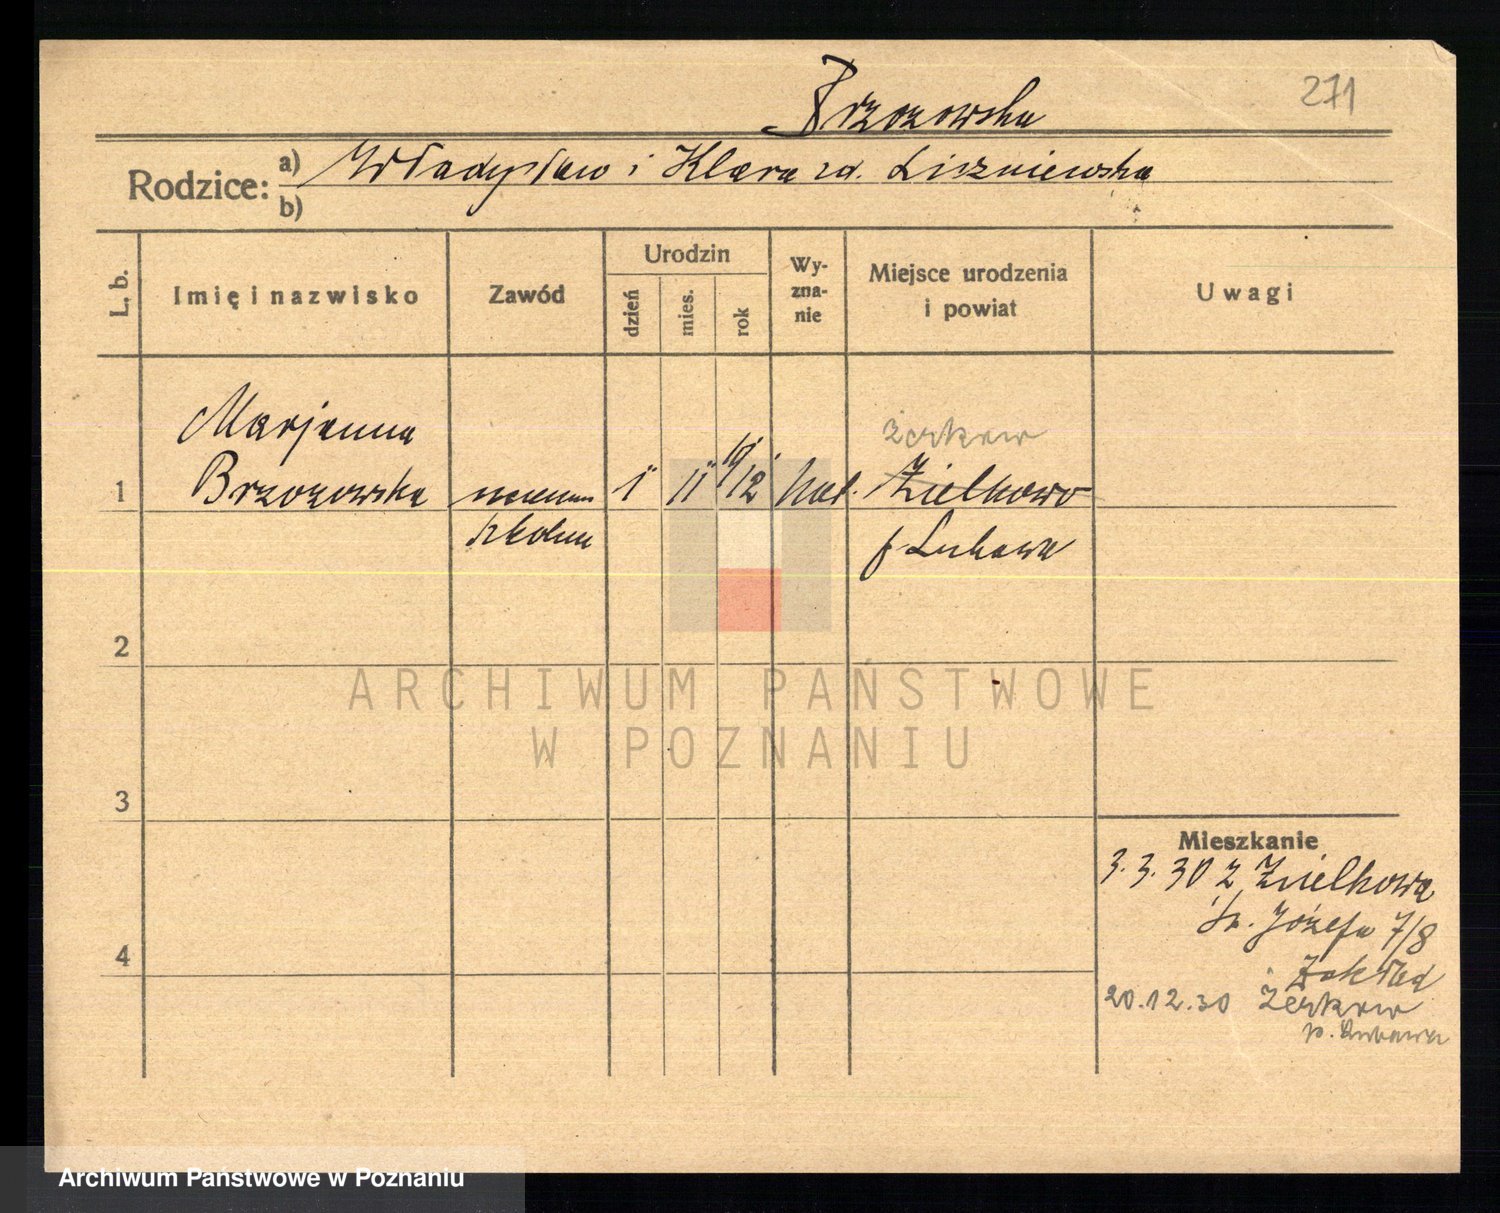 Brzozowska
271
Rodzice: a) Władysław i Klara zd. Liszniewska
b)
L. b.
Imię i nazwisko
Zawód
Urodzin
dzień
mies.
rok
Wy-
zna-
nie
Miejsce urodzenia
i powiat
Uwagi
Marjanna
żerkow
1 Brzozowska 1 11 1912 kat. Zielkowo
szkolna
p Lubawa
2
ARCHIWUM PAŃSTWOWE
W POZNANIU
3
Mieszkanie
3. 3. 30 z Zielkowa
Św. Józefa 7/8
Zakład
4
20.12.30 Żerkow
p. Lubawa
Archiwum Państwowe w Poznaniu